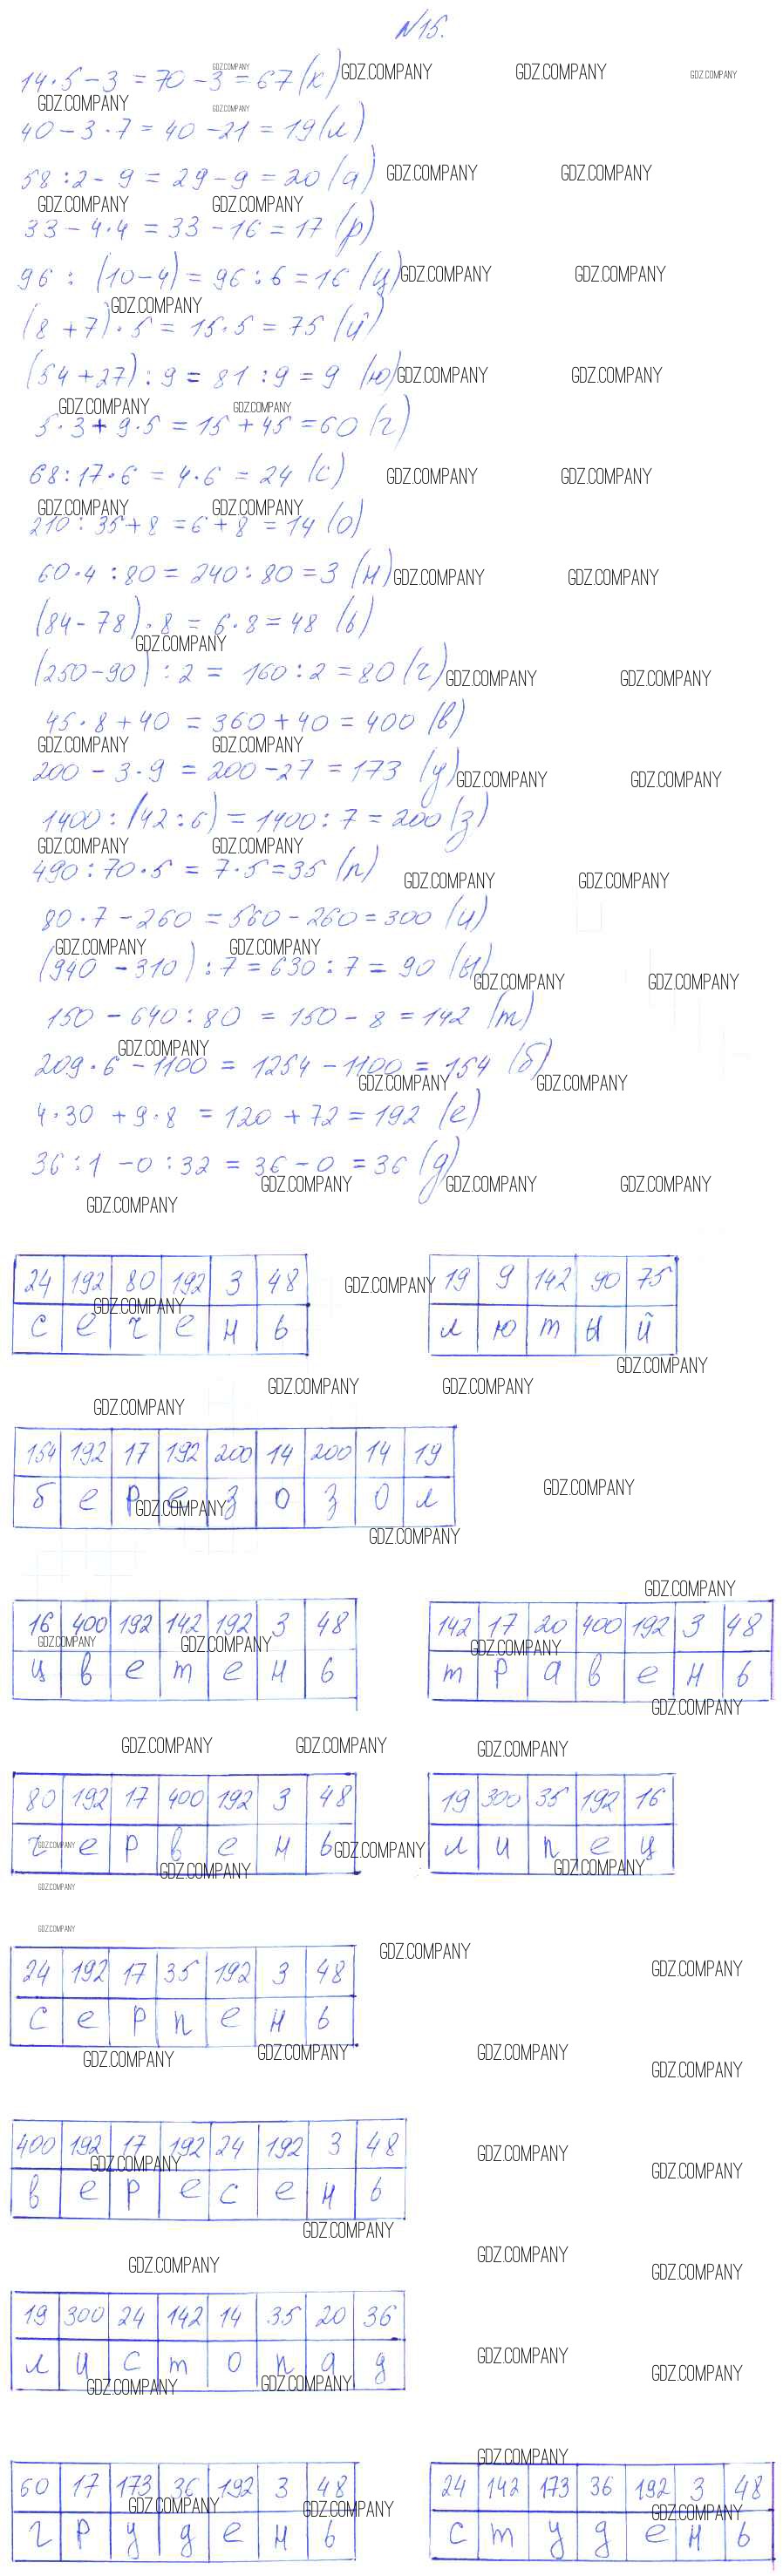 N15.
14·5-3 = 70-3 = 67 (к)
40-3·7 = 40-21 = 19 (л)
58:2-9 = 29-9 = 20 (а)
33-4·4 = 33-16 = 17 (р)
96:(10-4) = 96:6 = 16 (ц)
(8+7)·5 = 15·5 = 75 (й)
(54+27):9 = 81:9 = 9 (ю)
5·3+9·5 = 15+45 = 60 (г)
68:17·6 = 4·6 = 24 (с)
210:35+8 = 6+8 = 14 (о)
60·4:80 = 240:80 = 3 (н)
(84-78)·8 = 6·8 = 48 (ь)
(250-90):2 = 160:2 = 80 (ч)
45·8+40 = 360+40 = 400 (в)
200-3·9 = 200-27 = 173 (у)
1400:(42:6) = 1400:7 = 200 (з)
490:70·5 = 7·5 = 35 (п)
80·7-260 = 560-260 = 300 (и)
(940-310):7 = 630:7 = 90 (ы)
150-640:80 = 150-8 = 142 (т)
209·6-1100 = 1254-1100 = 154 (б)
4·30+9·8 = 120+72 = 192 (е)
36:1-0:32 = 36-0 = 36 (д)
24 192 80 192 3 48
с е ч е н ь
19 9 142 90 75
л ю т ы й
154 192 17 192 200 14 200 14 19
б е р е з о з о л
16 400 192 142 192 3 48
ц в е т е н ь
142 17 20 400 192 3 48
т р а в е н ь
80 192 17 400 192 3 48
ч е р в е н ь
19 300 35 192 16
л и п е ц
24 192 17 35 192 3 48
с е р п е н ь
400 192 17 192 24 192 3 48
в е р е с е н ь
19 300 24 142 14 35 20 36
л и с т о п а д
60 17 173 36 192 3 48
г р у д е н ь
24 142 173 36 192 3 48
с т у д е н ь
GDZ.COMPANY